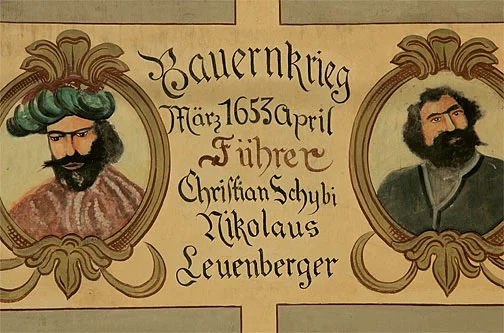 Bauernkrieg
März 1653 April
Führer
Christian Schybi
Nikolaus
Leuenberger